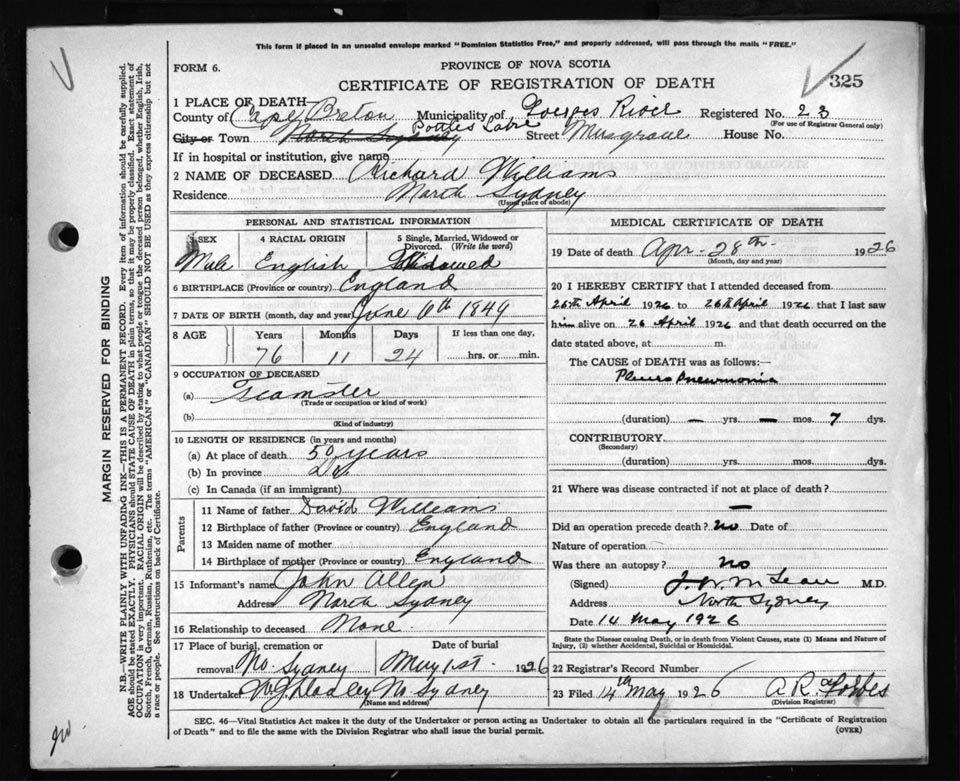 This form if placed in an unsealed envelope marked "Dominion Statistics Free," and properly addressed, will pass through the mails "FREE."
FORM 6.
PROVINCE OF NOVA SCOTIA
CERTIFICATE OF REGISTRATION OF DEATH
325
1 PLACE OF DEATH
County of Cape Breton Municipality of Georges River Registered No. 23
(For use of Registrar General only)
City or Town North Sydney Street Musgrave House No.
If in hospital or institution, give name
2 NAME OF DECEASED Richard Williams
Residence North Sydney
(Usual place of abode)
PERSONAL AND STATISTICAL INFORMATION
3 SEX 4 RACIAL ORIGIN 5 Single, Married, Widowed or Divorced. (Write the word)
Male English Widowed
6 BIRTHPLACE (Province or country) England
7 DATE OF BIRTH (month, day and year) June 6th 1849
8 AGE Years Months Days If less than one day,
76 11 24 hrs. or min.
9 OCCUPATION OF DECEASED
(a) Teamster
(Trade or occupation or kind of work)
(b)
(Kind of industry)
10 LENGTH OF RESIDENCE (in years and months)
(a) At place of death 50 years
(b) In province
(c) In Canada (if an immigrant)
Parents
11 Name of father David Williams
12 Birthplace of father (Province or country) England
13 Maiden name of mother
14 Birthplace of mother (Province or country) England
15 Informant's name John Allen
Address North Sydney
16 Relationship to deceased None.
17 Place of burial, cremation or removal No. Sydney
Date of burial May 1st. 1926
18 Undertaker No Sydney
(Name and address)
MEDICAL CERTIFICATE OF DEATH
19 Date of death Apr. 28th 1926
(Month, day and year)
20 I HEREBY CERTIFY that I attended deceased from
25th April 1926 to 26th April 1926 that I last saw
him alive on 26 April 1926 and that death occurred on the
date stated above, at m.
The CAUSE of DEATH was as follows:—
Pleuro Pneumonia
(duration) — yrs. — mos. 7 dys.
CONTRIBUTORY
(Secondary)
(duration) yrs. mos. dys.
21 Where was disease contracted if not at place of death?
—
Did an operation precede death? no Date of
Nature of operation
Was there an autopsy? no
(Signed) McLean M.D.
Address North Sydney
Date 14 May 1926
State the Disease causing Death, or in death from Violent Causes, state (1) Means and Nature of
Injury, (2) whether Accidental, Suicidal or Homicidal.
22 Registrar's Record Number
23 Filed 14th May 1926 A.R. Forbes
(Division Registrar)
SEC. 46—Vital Statistics Act makes it the duty of the Undertaker or person acting as Undertaker to obtain all the particulars required in the "Certificate of Registration
of Death" and to file the same with the Division Registrar who shall issue the burial permit.
(OVER)
MARGIN RESERVED FOR BINDING
N.B.—WRITE PLAINLY WITH UNFADING INK—THIS IS A PERMANENT RECORD. Every item of information should be carefully supplied.
AGE should be stated EXACTLY. PHYSICIANS should STATE CAUSE OF DEATH in plain terms, so that it may be properly classified. Exact statement of
OCCUPATION is very important. RACIAL ORIGIN will be described by stating to what people or tongue the deceased person belonged, whether English, Irish,
Scotch, French, German, Russian, Ruthenian, etc. The terms "AMERICAN" or "CANADIAN" SHOULD NOT BE USED as they express citizenship but not
a race or people. See instructions on back of Certificate.